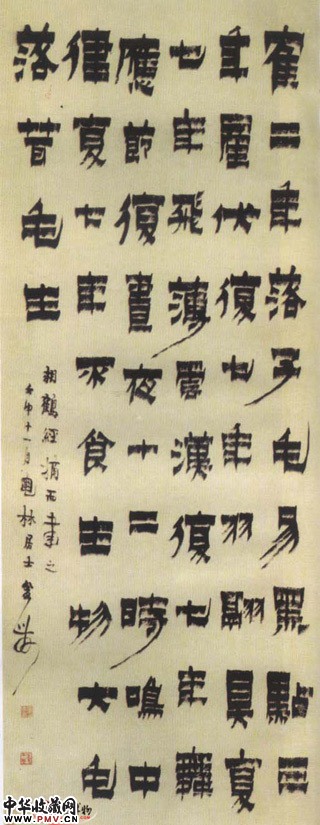 隺二年落子毛易黑點三
年產伏復七年羽翮具复
七年飛薄雲漢復七年舞
應節復晝夜十二時鳴中
律复七年不食生物大毛
落茸毛生
相鶴經摘而書之
十一月 林居士
中华收藏网
WWW.PMV.CN
物